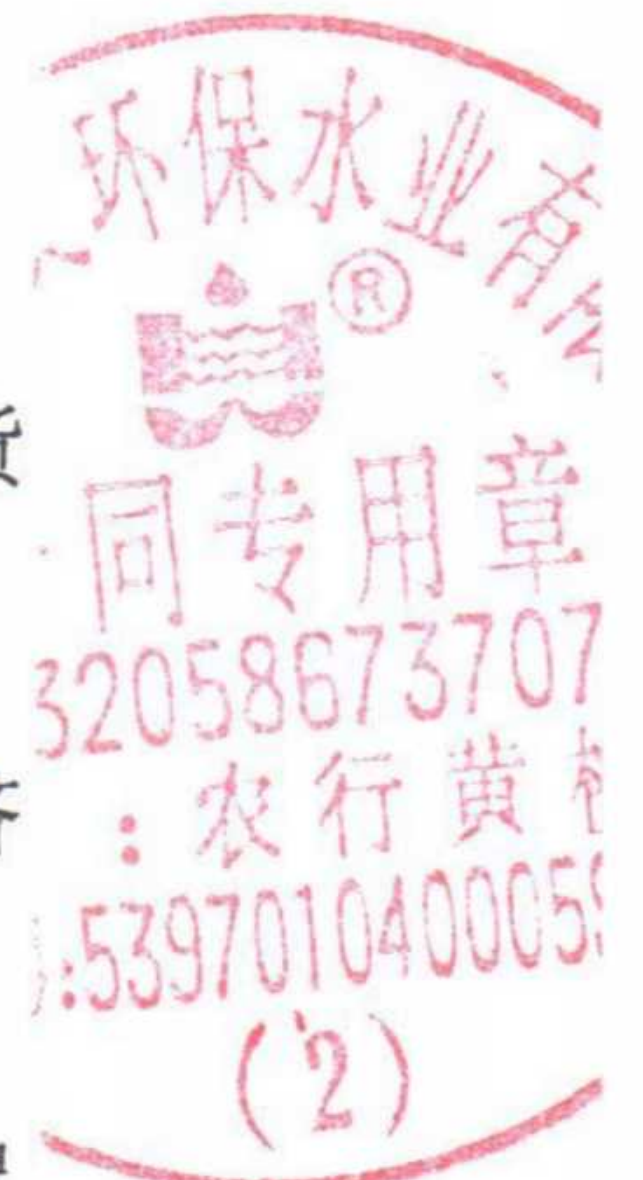 环保水业有
®
同专用章
32058673707
:农行黄
:5397010400005
(2)